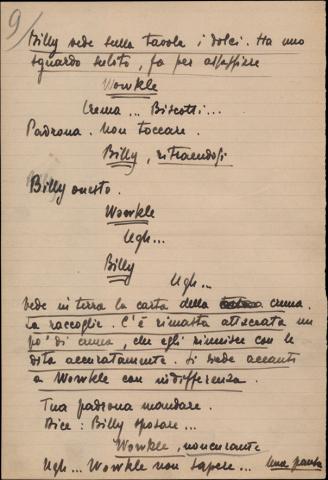 9/
Billy vede sulla tavola i dolci. Ha uno
sguardo subito, fa per afferrare
Wowkle
Crema... Biscotti...
Padrona. Non toccare.
Billy, ritraendosi
Billy onesto.
Wowkle
Ugh...
Billy
Ugh...
vede in terra la carta della crema.
La raccoglie. C'è rimasta attaccata un
po' di crema, che egli riunisce con le
dita accuratamente. Si siede accanto
a Wowkle con indifferenza.
Tua padrona mandare.
Dice: Billy sposare...
Wowkle, noncurante
Ugh... Wowkle non sapere... Una pausa